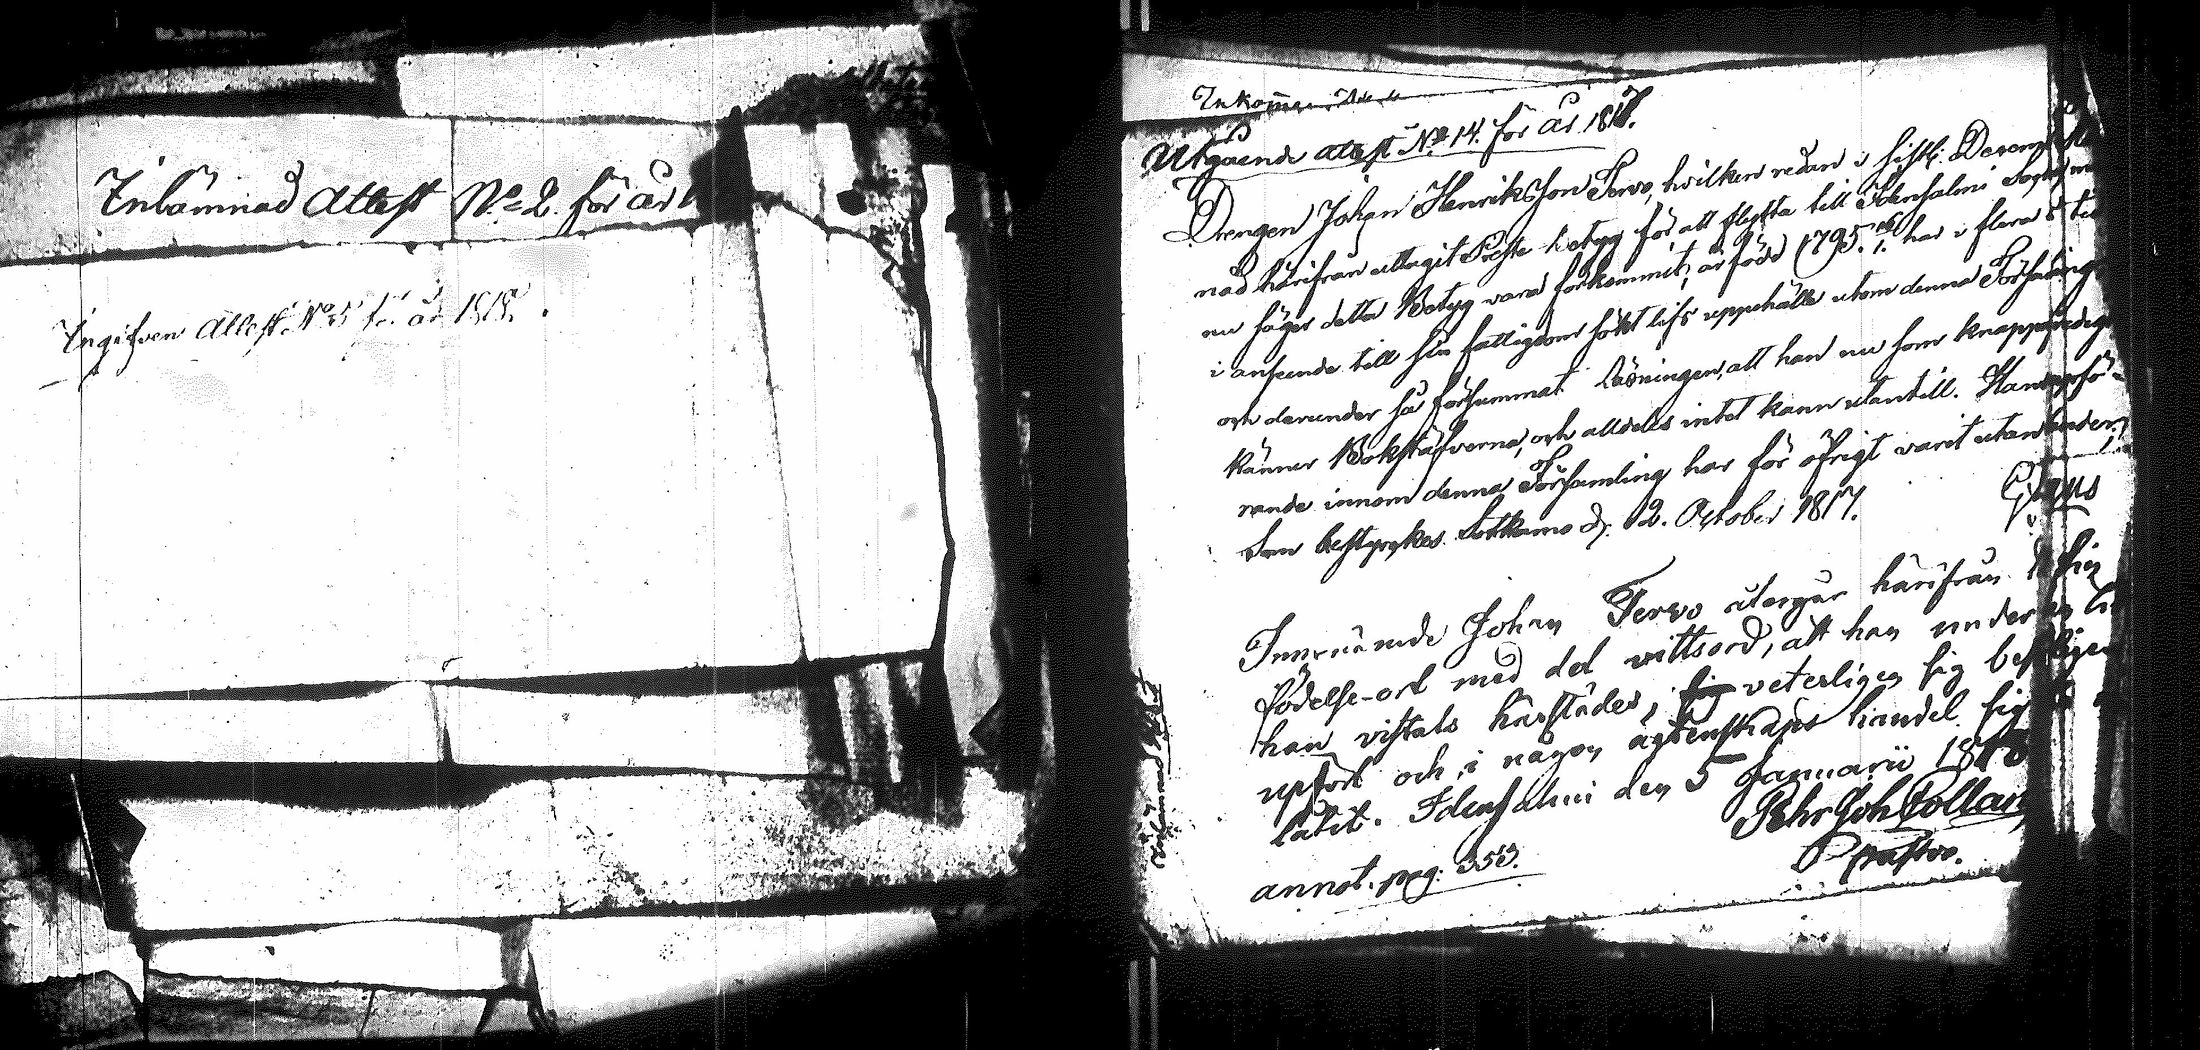 Inlämnad Attest No 2. för år
Ingifven Attest No 5 f. år 1818.
Inkommen
Utgående attest No 14. för år 1817.
Drengen Johan Henriksson Tervo, hvilken redan i sistl. Decemb
nad härifrån uttagit Preste betyg för att flytta till Idensalmi Sogn, men
nu säger detta Betyg vara förkommit, är född 1795. har i flera år
i anseende till sin fattigdom sökt lifs uppehälle utom denna Församling
och derunder så försummat läsningen, att han nu som knappast
känner Bokstäfverna, och alldeles intet kann utantill. Hans uppfö-
rande innom denna Församling har för öfrigt varit utan
Som bestyrkes. Sotkamo d. 2. October 1817.
Innenämde Johan Tervo återgår härifrån till sin
födelse-ort med del vittsord, att han under en
han vistats härstädes, veterligen sig
upfört och i någon ägtenskaps handel sig
låtit. Idensalmi den 5 Januarii 1818
Pehr Joh Collan
Prastvo.
annot. pag: 353.
Inlämnad